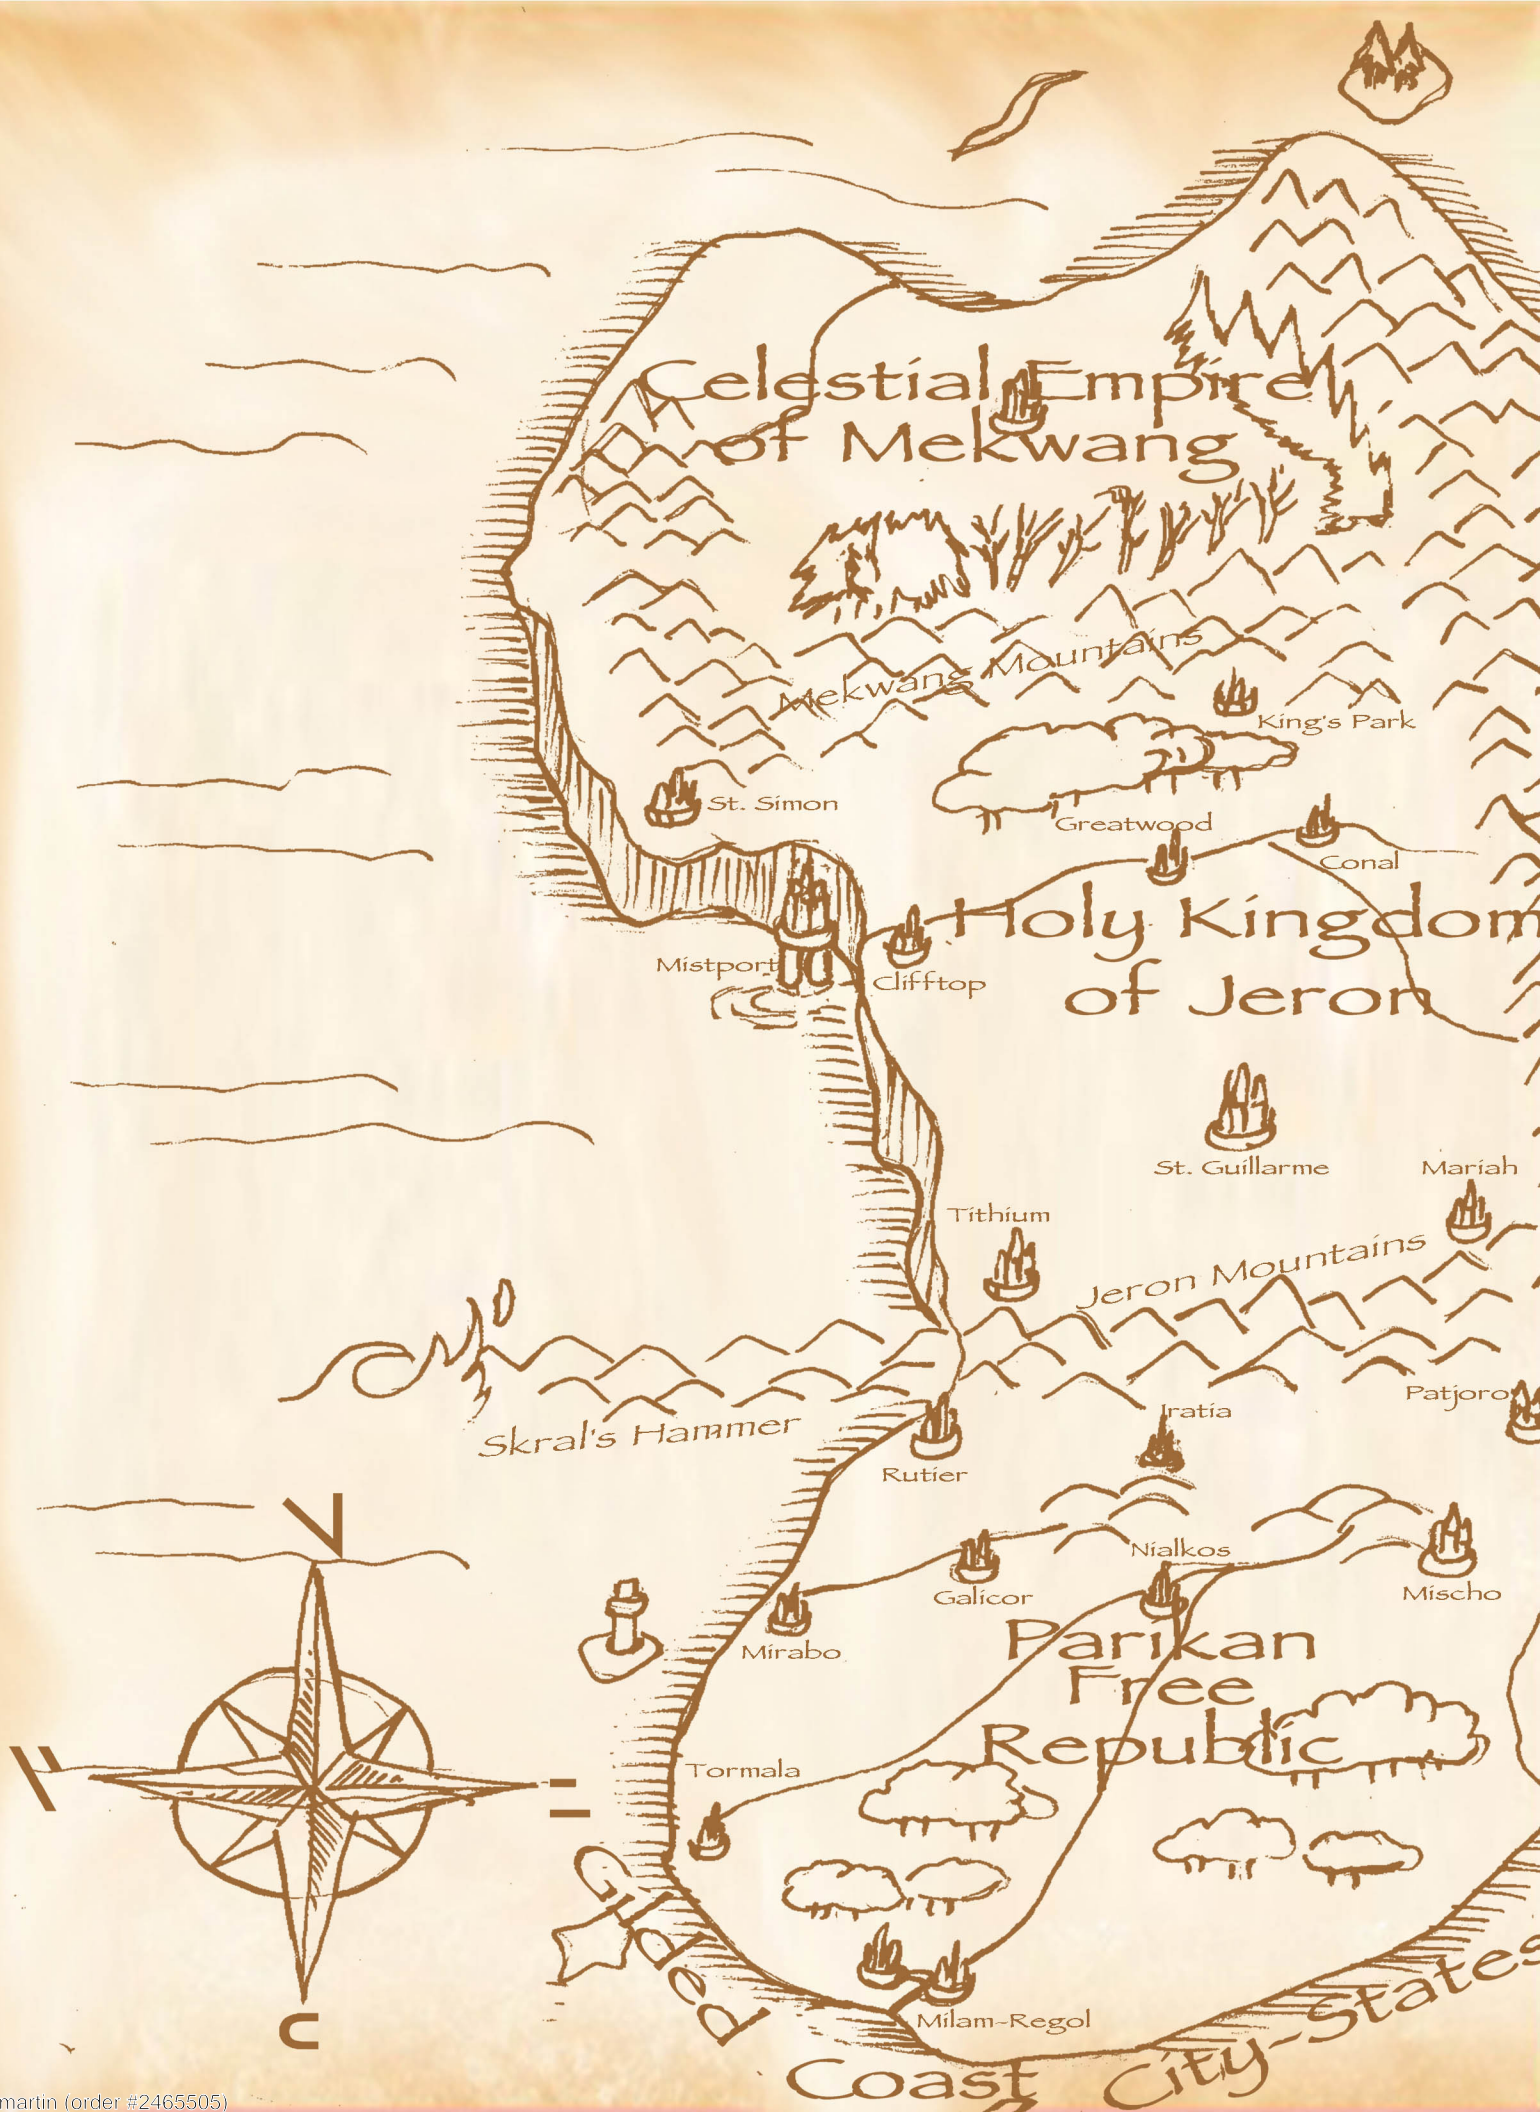 Celestial Empire
of Mekwang
Mekwang Mountains
King's Park
St. Simon
Greatwood
Conal
Holy Kingdom
of Jeron
Mistport
Clifftop
St. Guillarme
Mariah
Tithium
Jeron Mountains
Patjoro
Iratia
Skral's Hammer
Rutier
Nialkos
Galicor
Mischo
Mirabo
Parikan
Free
Republic
Tormala
Gilded
Milam-Regol
Coast
City-States
martin (order #2465505)